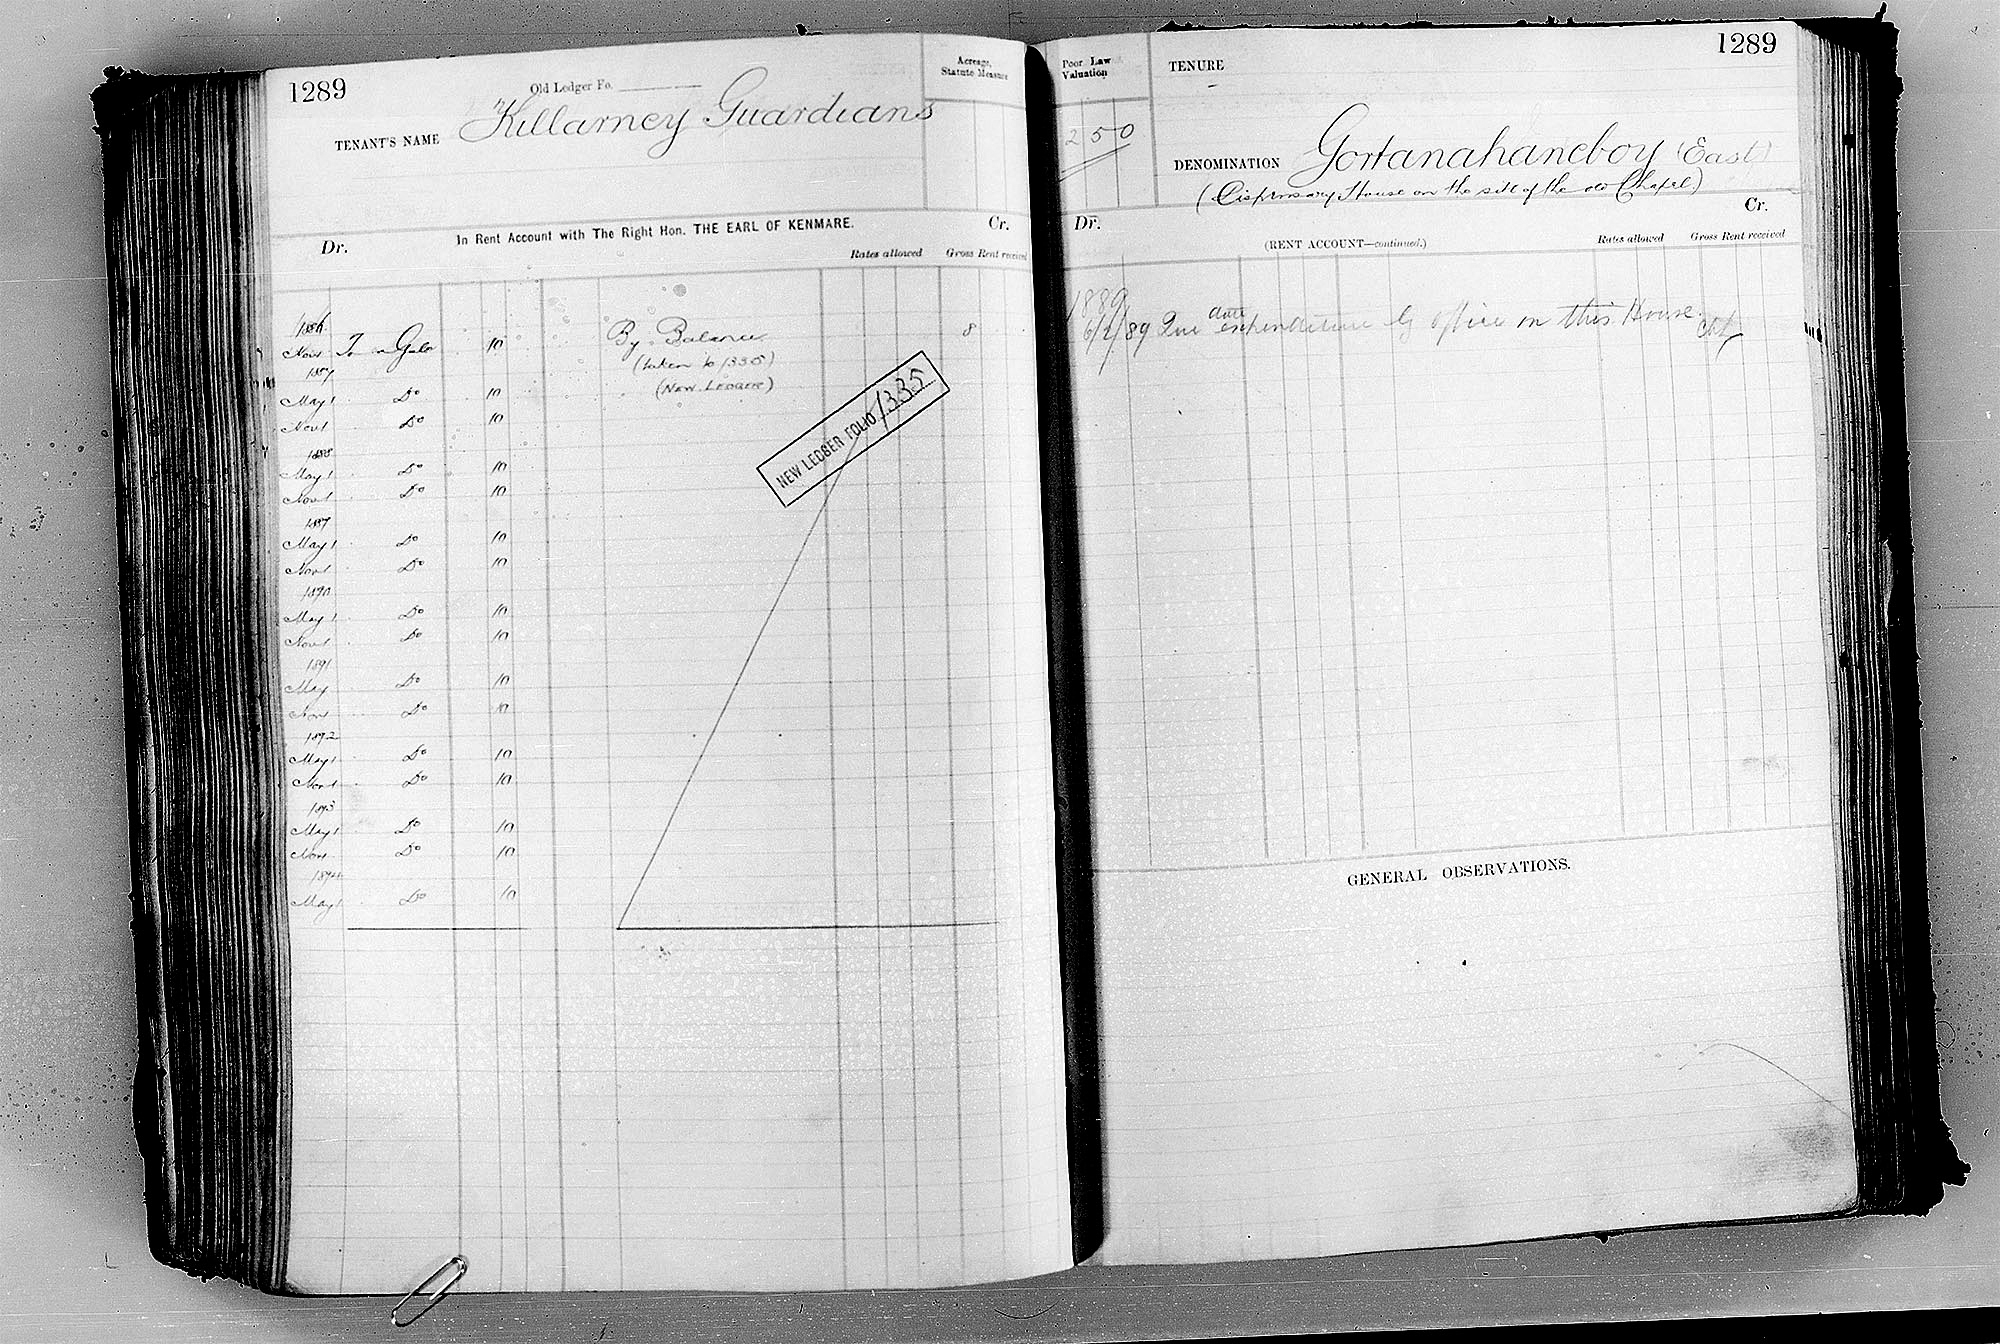 1289
Old Ledger Fo.
TENANT'S NAME Killarney Guardians
Acreage,
Statute Measure
In Rent Account with The Right Hon. THE EARL OF KENMARE.
Dr.
Cr.
Rates allowed Gross Rent received
1886
Nov1 To Gale 10 By Balance 8
(taken to 1335)
(NEW LEDGER)
1887
May 1 Do 10
Nov1 Do 10
1888
May 1 Do 10
Nov1 Do 10
1889
May 1 Do 10
Nov1 Do 10
1890
May 1 Do 10
Nov1 Do 10
1891
May Do 10
Nov1 Do 10
1892
May 1 Do 10
Nov1 Do 10
1893
May 1 Do 10
Nov Do 10
1894
May 1 Do 10
NEW LEDGER FOLIO 1335
1289
Poor Law
Valuation
2 5 0
TENURE
DENOMINATION Gortanahaneboy (East)
(Dispensary House on the site of the old Chapel)
Dr.
Cr.
(RENT ACCOUNT—continued.)
Rates allowed Gross Rent received
1889
date
/89 expenditure by office on this House
GENERAL OBSERVATIONS.